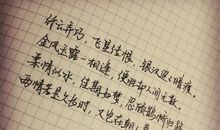 纤云弄巧，飞星传恨，银汉迢迢暗度。
金风玉露一相逢，便胜却人间无数。
柔情似水，佳期如梦，忍顾鹊桥归路。
两情若是久长时，又岂在朝朝暮